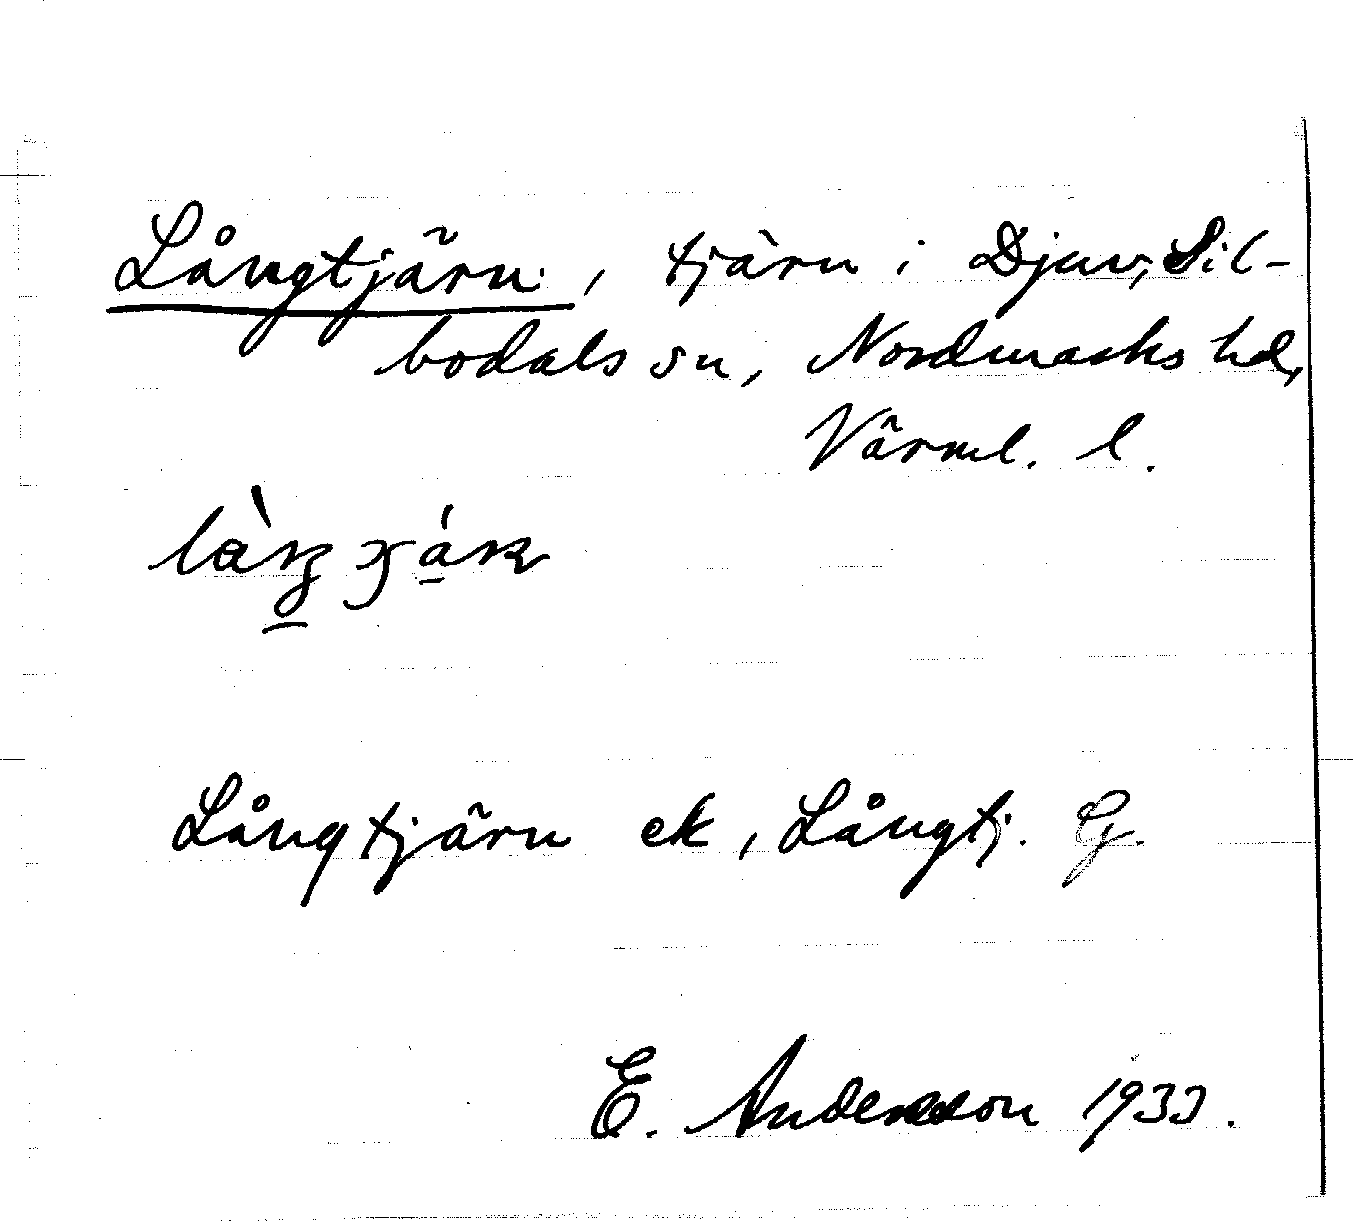 Långtjärn, tjärn i Djuv, Sil-
bodals sn, Nordmarks hd,
Värml. l.
Långtjärn ek, Långtj. G.
E. Andersson 1933.